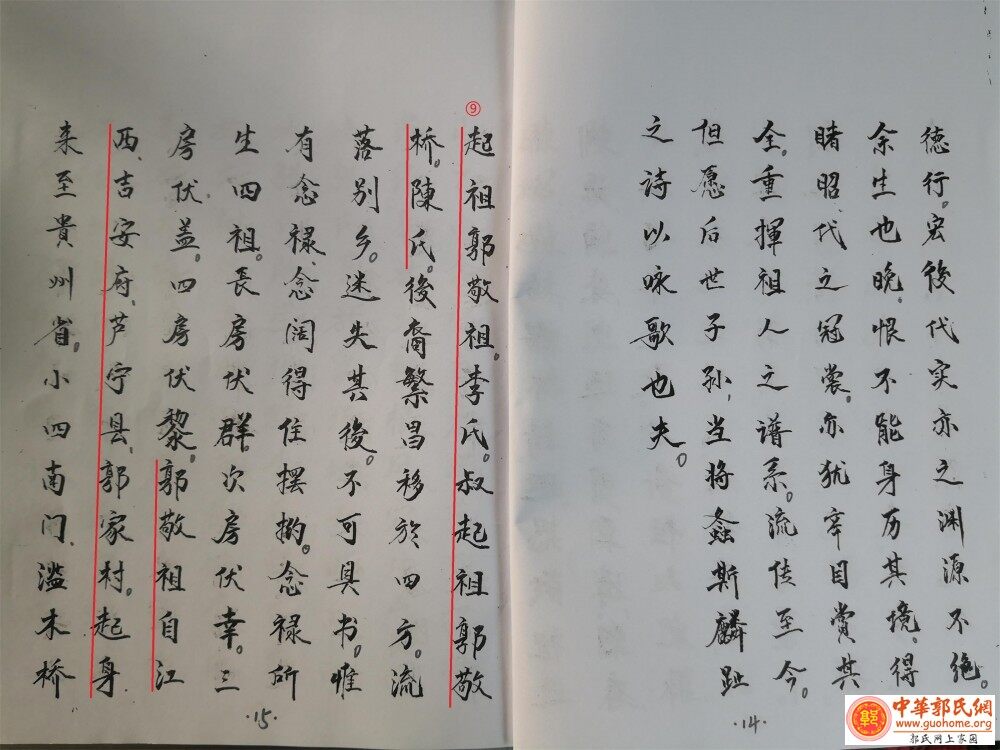 德行。宏後代实亦之渊源不绝。
余生也晚。恨不能身历其境、得
睹昭代之冠裳。亦犹幸目赏其
全。重揮祖人之谱系。流传至今。
但愿后世子孙，当将螽斯麟趾
之诗以咏歌也夫。
·14·
⑨
起祖郭敬祖。李氏。叔起祖郭敬
桥。陳氏。後裔繁昌移於四方。流
落别乡。迷失其後。不可具书。惟
有念禄、念阔得住摆𢭏。念禄所
生四祖。長房伏群。次房伏幸。三
房伏盖。四房伏黎。郭敬祖自江
西、吉安府、芦宁县、郭家村。起身
来至貴州省。小四南门、滥木桥
·15·
郭
中華郭氏網
www.guohome.org
郭氏网上家园